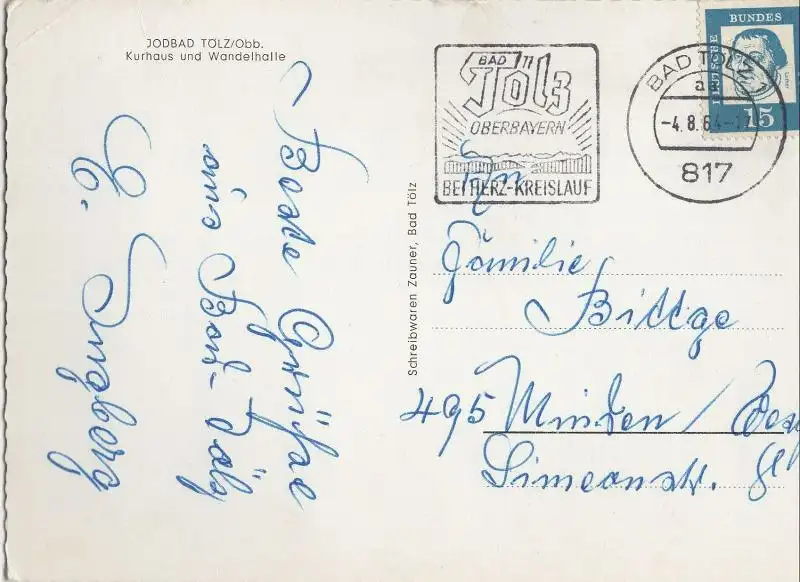 JODBAD TÖLZ/Obb.
Kurhaus und Wandelhalle
Beste Grüße
aus Bad-Tölz
Ingeborg
Schreibwaren Zauner, Bad Tölz
BAD
Tölz
OBERBAYERN
BEI HERZ-KREISLAUF
BAD TÖLZ 1
-4.8.64-17
817
DEUTSCHE
BUNDES
Luther
15
An
Familie
Bittge
495 Minden /
Simeonstr.